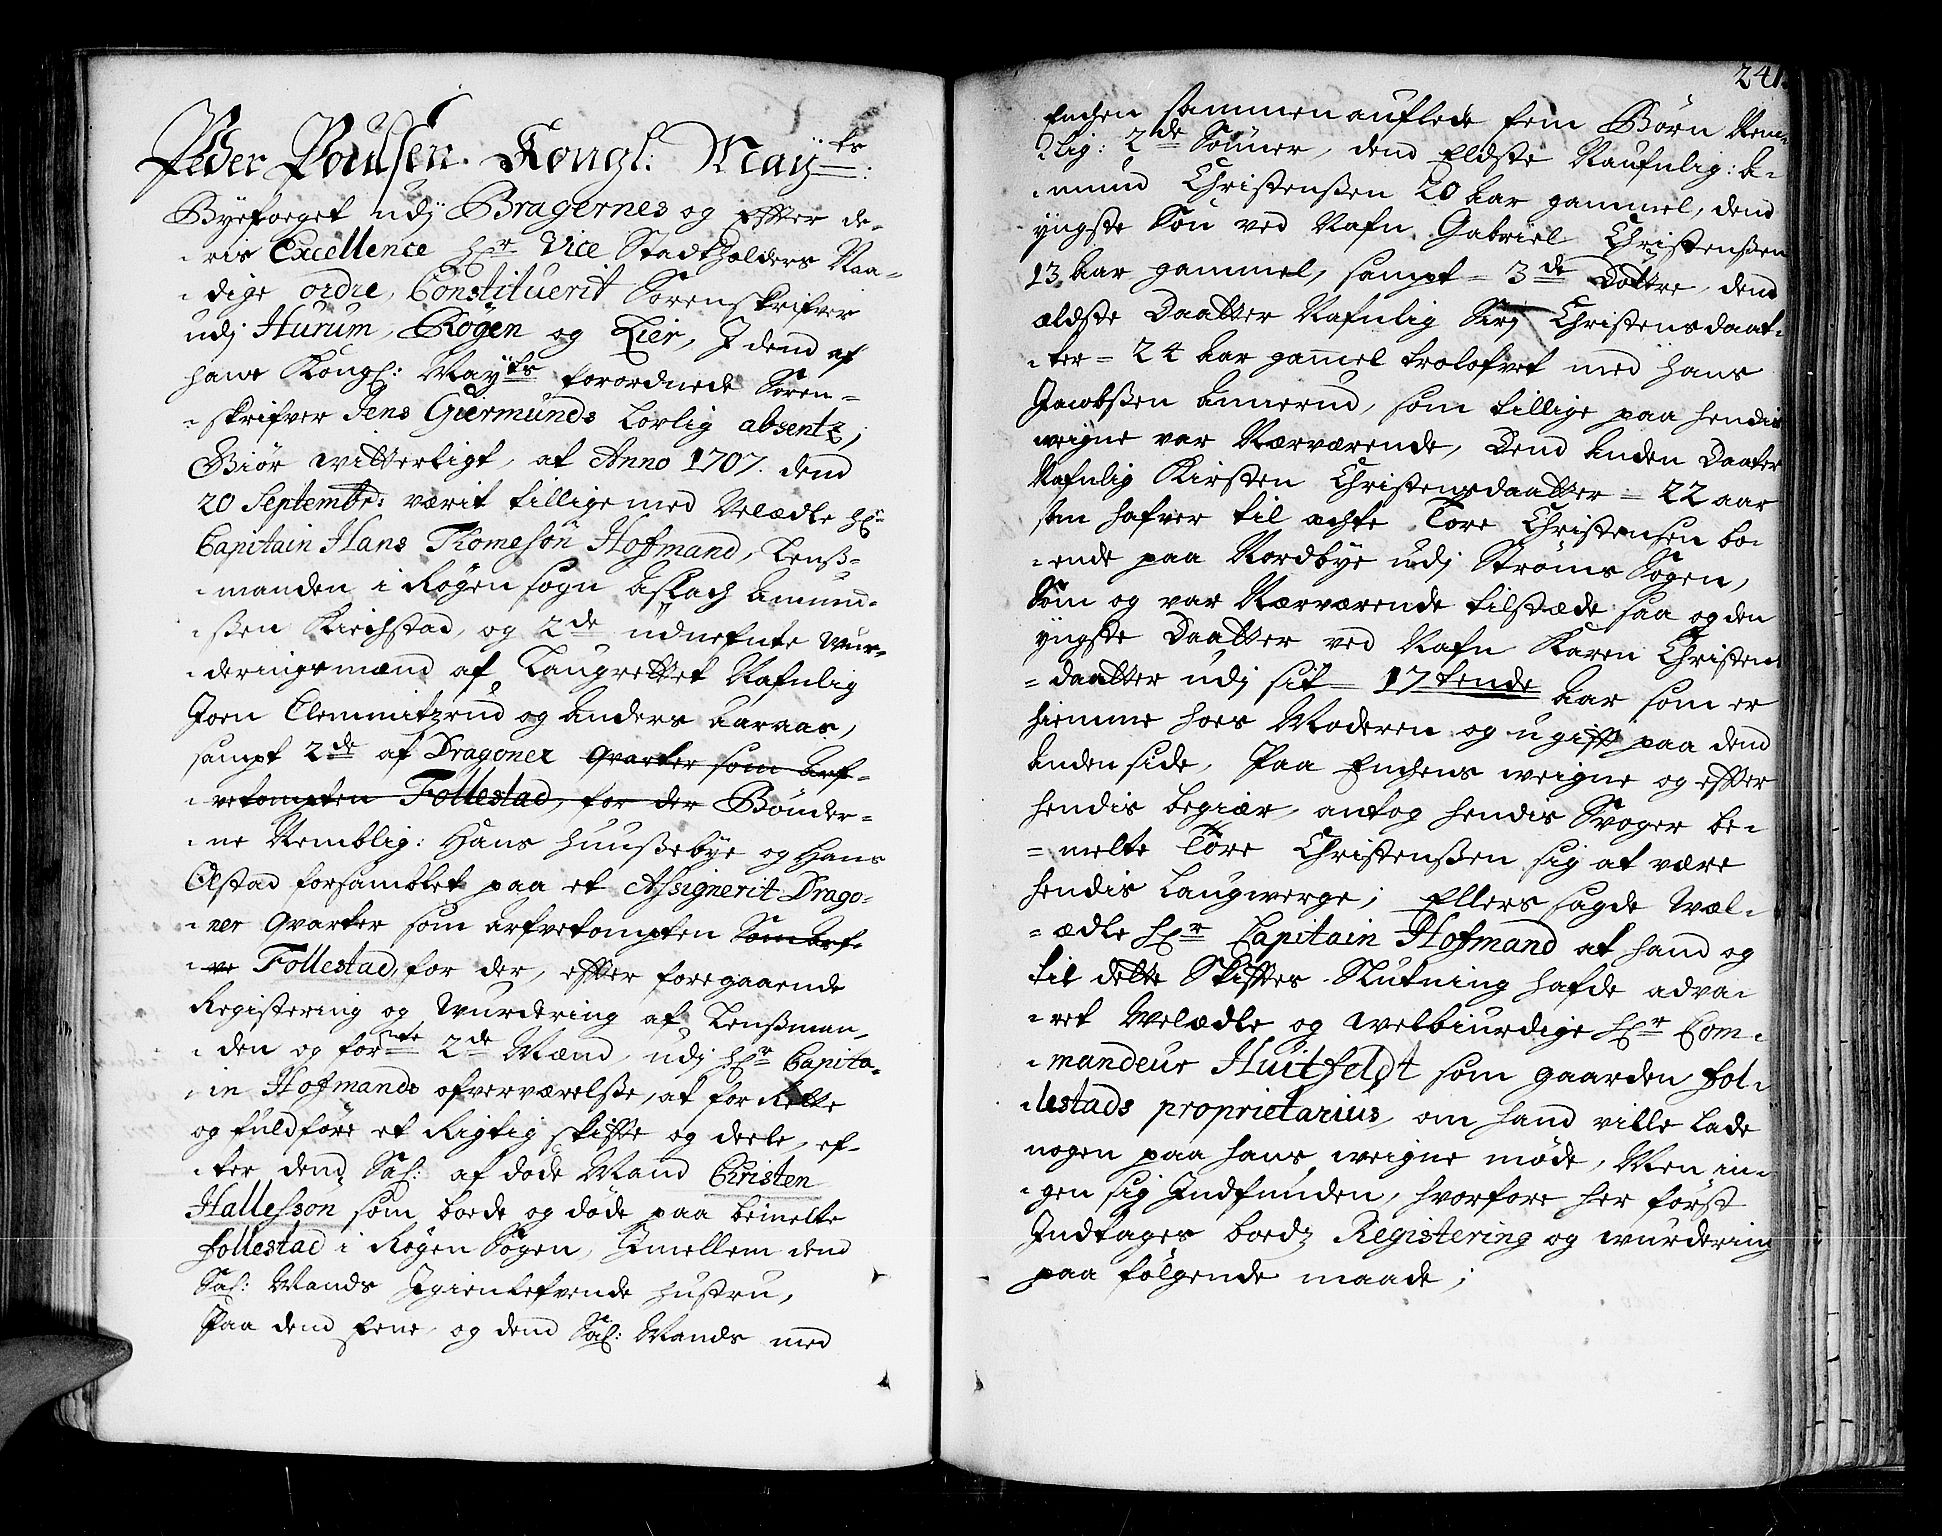 Peder Poulsen. Kongl: Mayts:
Byefoeget udj Bragernes og Effter de-
-ris Excellence Hr Vice Stadtholders Naa-
-dige ordre, Constituerit Sorenskrifver
udj Hurum, Røgen og Lier, J dend af
hans Kongl: Mayts forordnede Soren-
-skrifver Jens Giermunds Lovlig absentz,
Giør witterligt, at Anno 1707. dend
20 Septembr: værit tillige med Velædle Hr
Capitain Hans Thomesøn Hofmand, Lenss-
-manden i Røgen sogn Aslach Amund-
-ssen Kirchstad, og 2de udnefnte wur-
-deringsmænd af Laugrettet Nafnlig
Joen Clemmitzrud og Anders Aaraas,
sampt 2de af Dragoner Qvarter som Arf-
-vetompten Follestad, for der Bønder-
-ne Nemblig: Hans Huussebye og Hans
Olstad forsamblet paa et Assignerit Drago-
-ner Qvarter som Arfvetompten Som Arf-
-ve Follestad, for der, effter foregaaende
Registering og Wurdering af Lenssman-
-den og forne 2de Mænd, udj Hr Capita-
-in Hofmands ofverværelsse, at forRette
og fuldføre et Rigtig skiffte og deele, ef-
-ter dend Sal: af døde Mand Christen
Hallesson som boede og døde paa bemelte
follestad i Røgen Sogen, Jmellem dend
Sal: Mands Jgienlefvende Hustru,
Paa dend Eene, og dend Sal: Mands med
241.
Enchen sammenauflede fem Børn Nem-
-lig: 2de Sønner, dend Eldste Naufnlig: A-
-mund Christenssen 20 Aar gammel, dend
yngste Søn ved Nafn Gabriel Christenssen
13 Aar gammel, sampt = 3de Døttre, dend
ældste Daatter Nafnlig Sirj Christensdaat-
-ter = 24 Aar gammel trolofvet med Hans
Jacobssen Annerud, som tillige paa hendis
weigne var Nærværende, Dend Anden Daater
Nafnlig Kirsten Christensdaatter = 22 aar
som hafver til achte Tore Christensen bo-
-ende paa Nordbye udj Strøms Sogen,
Som og var Nærværende tilstæde, saa og den
yngste Daatter ved Nafn Karen Christens
=daatter udj sit = 17tende Aar som er
hiemme hoes Moderen og ugifft paa dend
Anden side, Paa Enchens weigne og effter
hendis begiær, antog hendis Svoger be-
=melte Tore Christenssen sig at være
hendis Laugwerge; Ellers sagde Wæl-
=ædle Hr Capitain Hofmand at hand og
til dette Skifftes Slutning hafde adva-
-ret Welædle og welbiurdige Hr Com-
-mandeur Huitfeldt som gaarden fol-
-lestads proprietarius, om hand ville lade
nogen paa hans weigne møde, Men in-
-gen sig Jndfunden, hvorfore her først
Jndtages boedz Registering og wurdering
paa følgende maade;